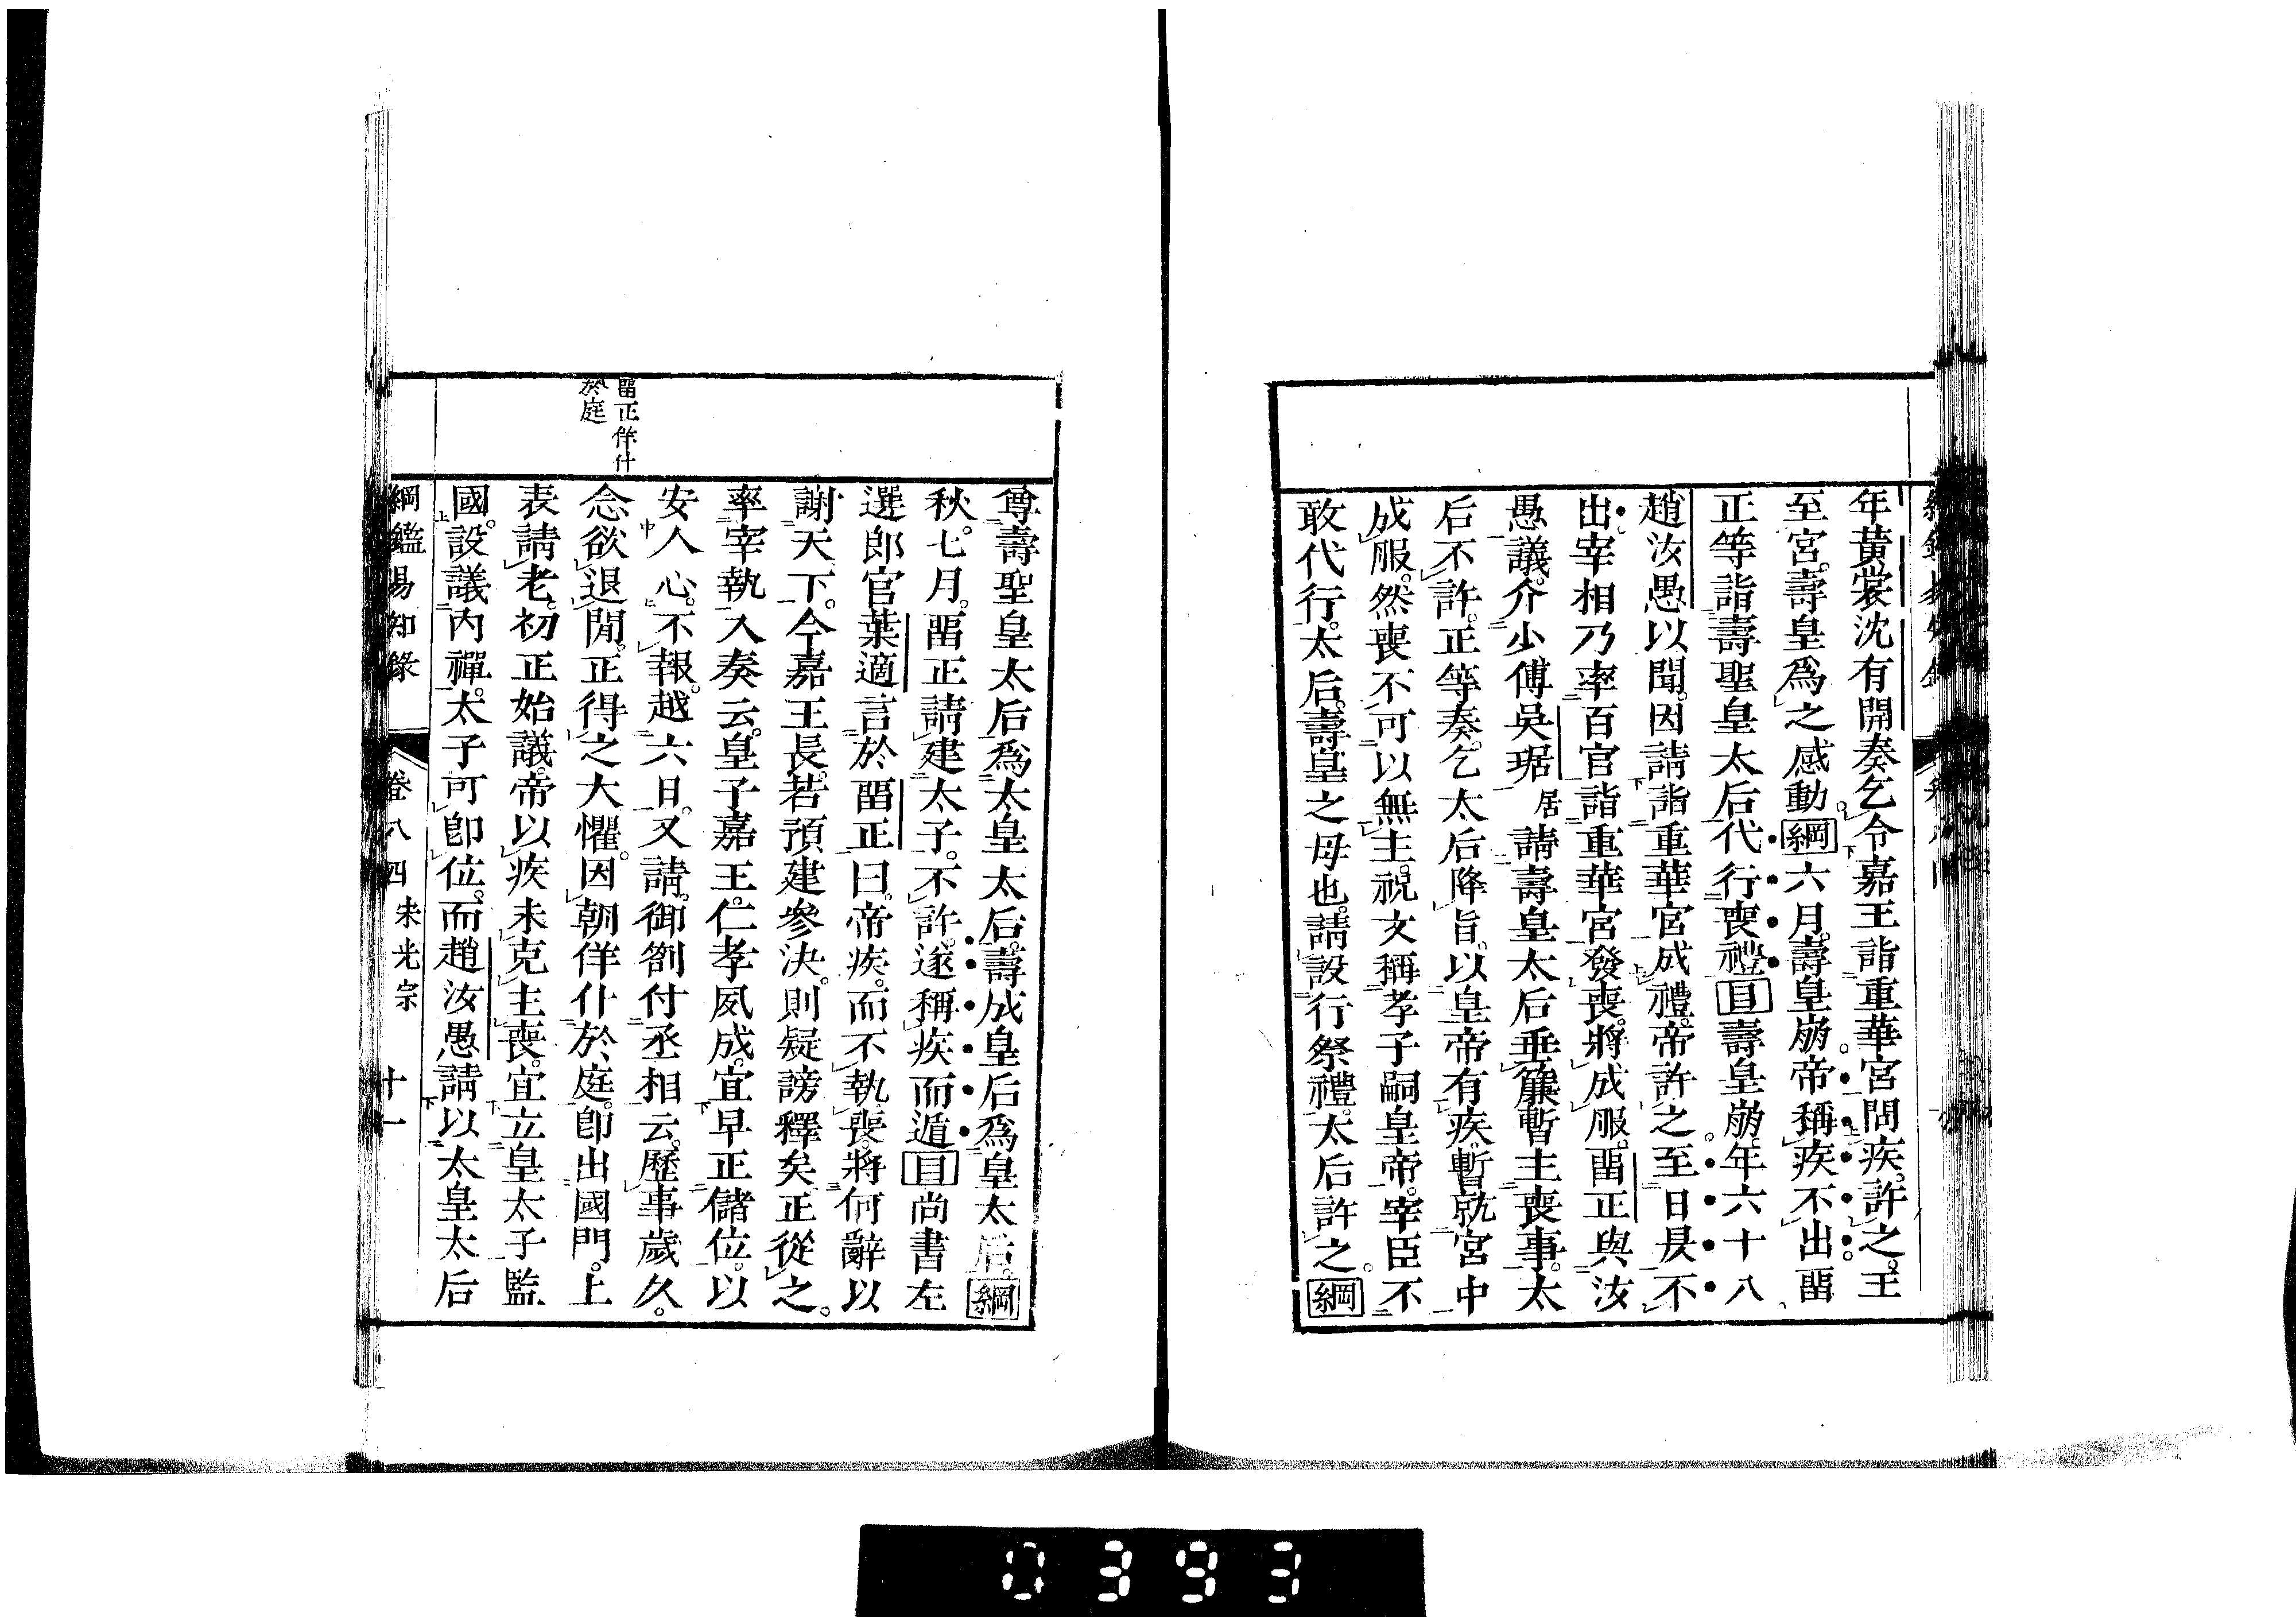 年黃裳沈有開奏乞令嘉王詣重華宮問疾。許之。王
至宮。壽皇爲之感動。綱六月。壽皇崩。帝稱疾不出。畱
正等詣壽聖皇太后代行喪禮目壽皇崩。年六十八
趙汝愚以聞。因請詣重華宮成禮。帝許之。至日昃不
出。宰相乃率百官詣重華宮發喪。將成服。畱正與汝
愚議。介少傅吳琚居請壽皇太后垂簾暫主喪事。太
后不許。正等奏。乞太后降旨。以皇帝有疾。暫就宮中
成服。然喪不可以無主。祝文稱孝子嗣皇帝。宰臣不
敢代行。太后。壽皇之母也。請設行祭禮。太后許之。綱
尊壽聖皇太后爲太皇太后。壽成皇后爲皇太后。綱
秋。七月。畱正請建太子。不許。遂稱疾而遁目尚書左
選郎官葉適言於畱正曰。帝疾。而不執喪。將何辭以
謝天下。今嘉王長。若預建參決。則疑謗釋矣正從之。
率宰執入奏云。皇子嘉王。仁孝夙成。宜早正儲位。以
安人心。不報。越六日。又請。御劄付丞相云。歷事歲久。
念欲退閒。正得之大懼。因朝佯仆於庭。卽出國門。上
表請老。初正始議。帝以疾未克主喪。宜立皇太子監
國。設議內禪。太子可卽位。而趙汝愚請以太皇太后
畱正佯仆
於庭
綱鑑易知錄 卷八四 宋光宗 十一
0393